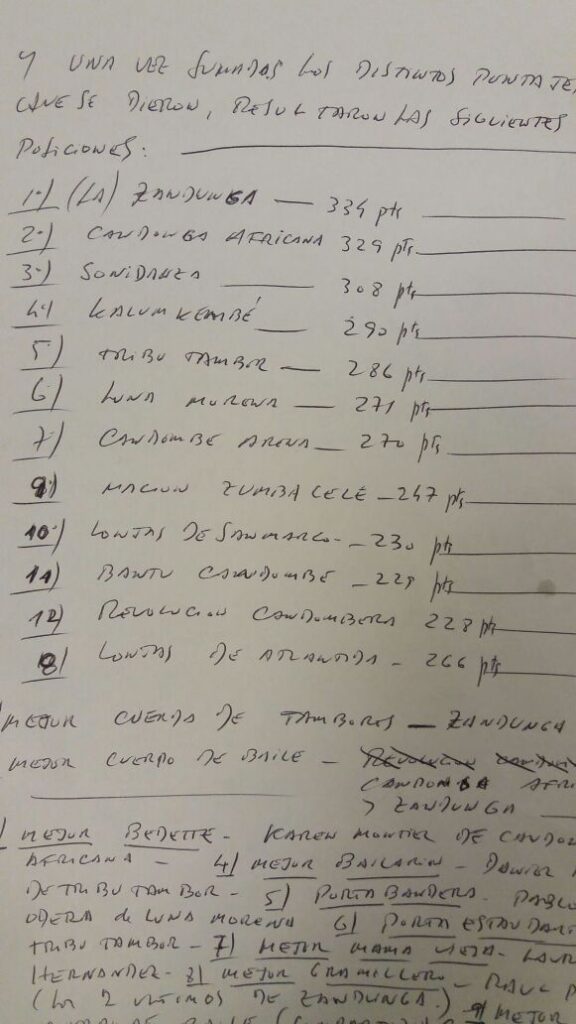 Y UNA VEZ SUMADOS LOS DISTINTOS PUNTAJES
QUE SE DIERON, RESULTARON LAS SIGUIENTES
POSICIONES:
1.) (LA) ZANDUNGA — 334 pts
2.) CANDONGA AFRICANA 329 pts
3.) SONIDANZA 308 pts
4.) KALUMKEMBÉ 290 pts
5) TRIBU TAMBOR — 286 pts
6) LUNA MORENA — 271 pts
7) CANDOMBE ARENA — 270 pts
9) MACION ZUMBA CELÉ — 247 pts
10) LONJAS DE SAN MARCO — 230 pts
11) BANTU CANDOMBE — 229 pts
12) REVOLUCION CANDOMBERA 228 pts
8) LONJAS DE ATLANTIDA — 266 pts
MEJOR CUERDA DE TAMBORES — ZANDUNGA
MEJOR CUERPO DE BAILE — REVOLUCION
CANDONGA AFRI
Y ZANDUNGA
MEJOR BEDETTE - KAREN MONTIEL DE CANDO
AFRICANA — 4) MEJOR BAILARIN - DANIEL
DE TRIBU TAMBOR - 5) PORTA BANDERA - PABLO
de LUNA MORENA 6) PORTA ESTANDART
TRIBU TAMBOR - 7) MEJOR MAMA VIEJA - LAUR
HERNANDEZ - 8) MEJOR GRAMILLERO - RAUL P
(LOS 2 ULTIMOS DE ZANDUNGA) 9) MEJOR